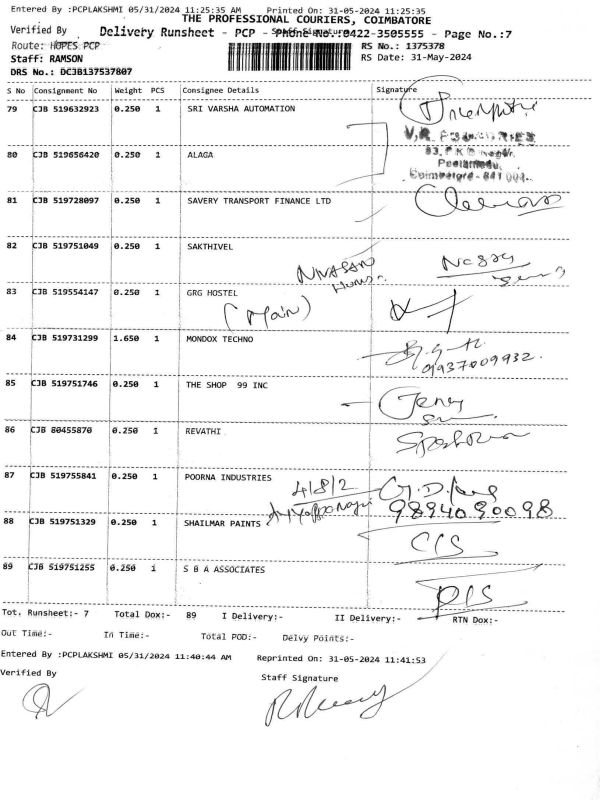 Entered By :PCPLAKSHMI 05/31/2024 11:25:35 AM Printed On: 31-05-2024 11:25:35
THE PROFESSIONAL COURIERS, COIMBATORE
Verified By Delivery Runsheet - PCP - Phone No.:0422-3505555 - Page No.:7
Staff Signature
Route: HOPES PCP RS No.: 1375378
Staff: RAMSON RS Date: 31-May-2024
DRS No.: DCJB137537807
S No Consignment No Weight PCS Consignee Details Signature
79 CJB 519632923 0.250 1 SRI VARSHA AUTOMATION
80 CJB 519656420 0.250 1 ALAGA
Coimbatore - 641 004.
81 CJB 519728097 0.250 1 SAVERY TRANSPORT FINANCE LTD
82 CJB 519751049 0.250 1 SAKTHIVEL
83 CJB 519554147 0.250 1 GRG HOSTEL
(Main)
84 CJB 519731299 1.650 1 MONDOX TECHNO
85 CJB 519751746 0.250 1 THE SHOP 99 INC
86 CJB 80455870 0.250 1 REVATHI
87 CJB 519755841 0.250 1 POORNA INDUSTRIES
4/8/2
9894090098
88 CJB 519751329 0.250 1 SHAILMAR PAINTS
89 CJB 519751255 0.250 1 S B A ASSOCIATES
Tot. Runsheet:- 7 Total Dox:- 89 I Delivery:- II Delivery:- RTN Dox:-
Out Time:- In Time:- Total POD:- Delvy Points:-
Entered By :PCPLAKSHMI 05/31/2024 11:40:44 AM Reprinted On: 31-05-2024 11:41:53
Verified By Staff Signature